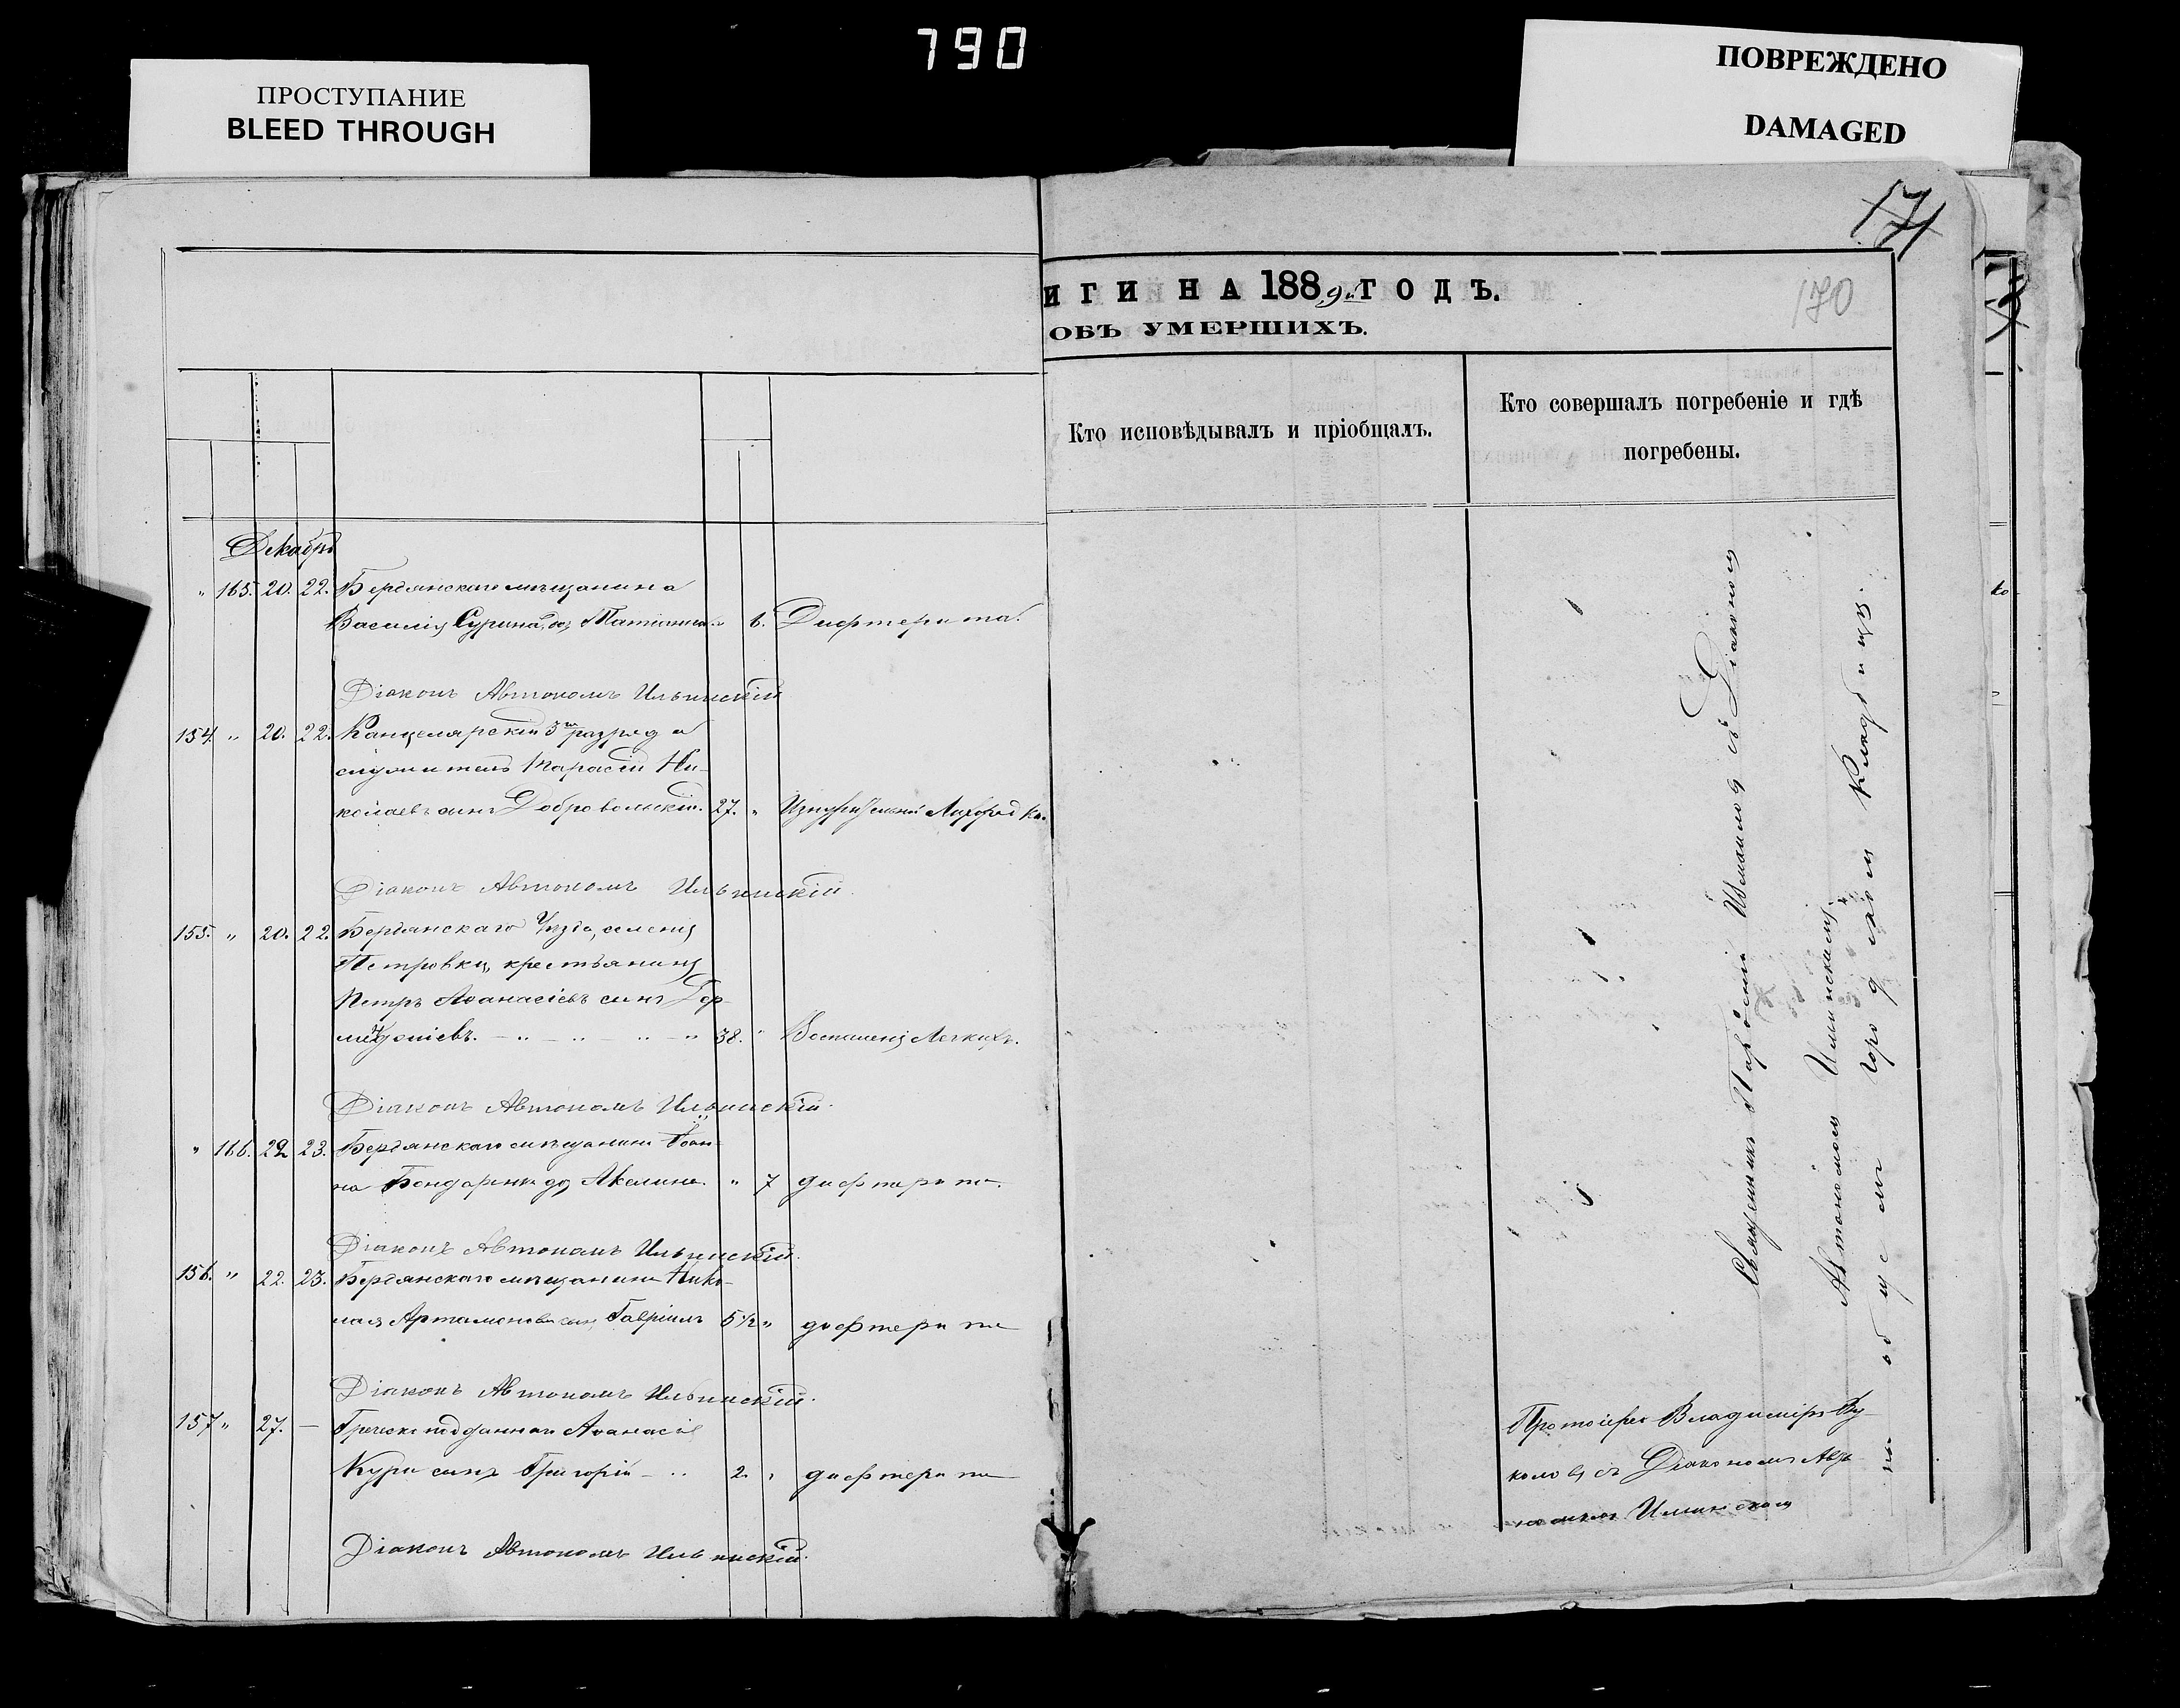 790
ПРОСТУПАНИЕ
BLEED THROUGH
ПОВРЕЖДЕНО
DAMAGED
171
170
ИГИ НА 1889 ГОДЪ.
ОБЪ УМЕРШИХЪ.
Кто исповѣдывалъ и пріобщалъ.
Кто совершалъ погребеніе и гдѣ
погребены.
Декабрь
" 165. 20. 22. Бердянскаго мѣщанина
Василія Сурина, Татіана " 6. Дифтерита.
Діаконъ Автономъ Ильинскій
154. " 20. 22. Канцелярскій 3го разряда
служитель Тарасій Ни-
колаевъ сынъ Добровольскій. 27. " Изнурительной Лихорадки.
Діаконъ Автономъ Ильинскій.
155. " 20. 22. Бердянскаго Уѣзда, селенія
Петровки, крестьянинъ
Петръ Аѳанасіевъ сынъ
38. " Воспаленія Легкихъ.
Діаконъ Автономъ Ильинскій.
" 166. 22. 23. Бердянскаго мѣщанина Іоан-
на Бондаренка Акилина. " 7 дифтерита.
Діаконъ Автономъ Ильинскій.
156. " 22. 23. Бердянскаго мѣщанина Нико-
лая Артамонова сынъ Гавріилъ 5 1/2 " дифтерита
Діаконъ Автономъ Ильинскій.
157 " 27. — Греческоподданнаго Аѳанасія
Кури сынъ Григорій 2. " дифтерита
Діаконъ Автономъ Ильинскій.
Священникъ Діакономъ
Автономомъ Ильинскимъ
на общемъ городскомъ кладбищѣ.
Протоіерей Владиміръ Ву-
коловъ съ Діакономъ Авто-
номомъ Ильинскимъ